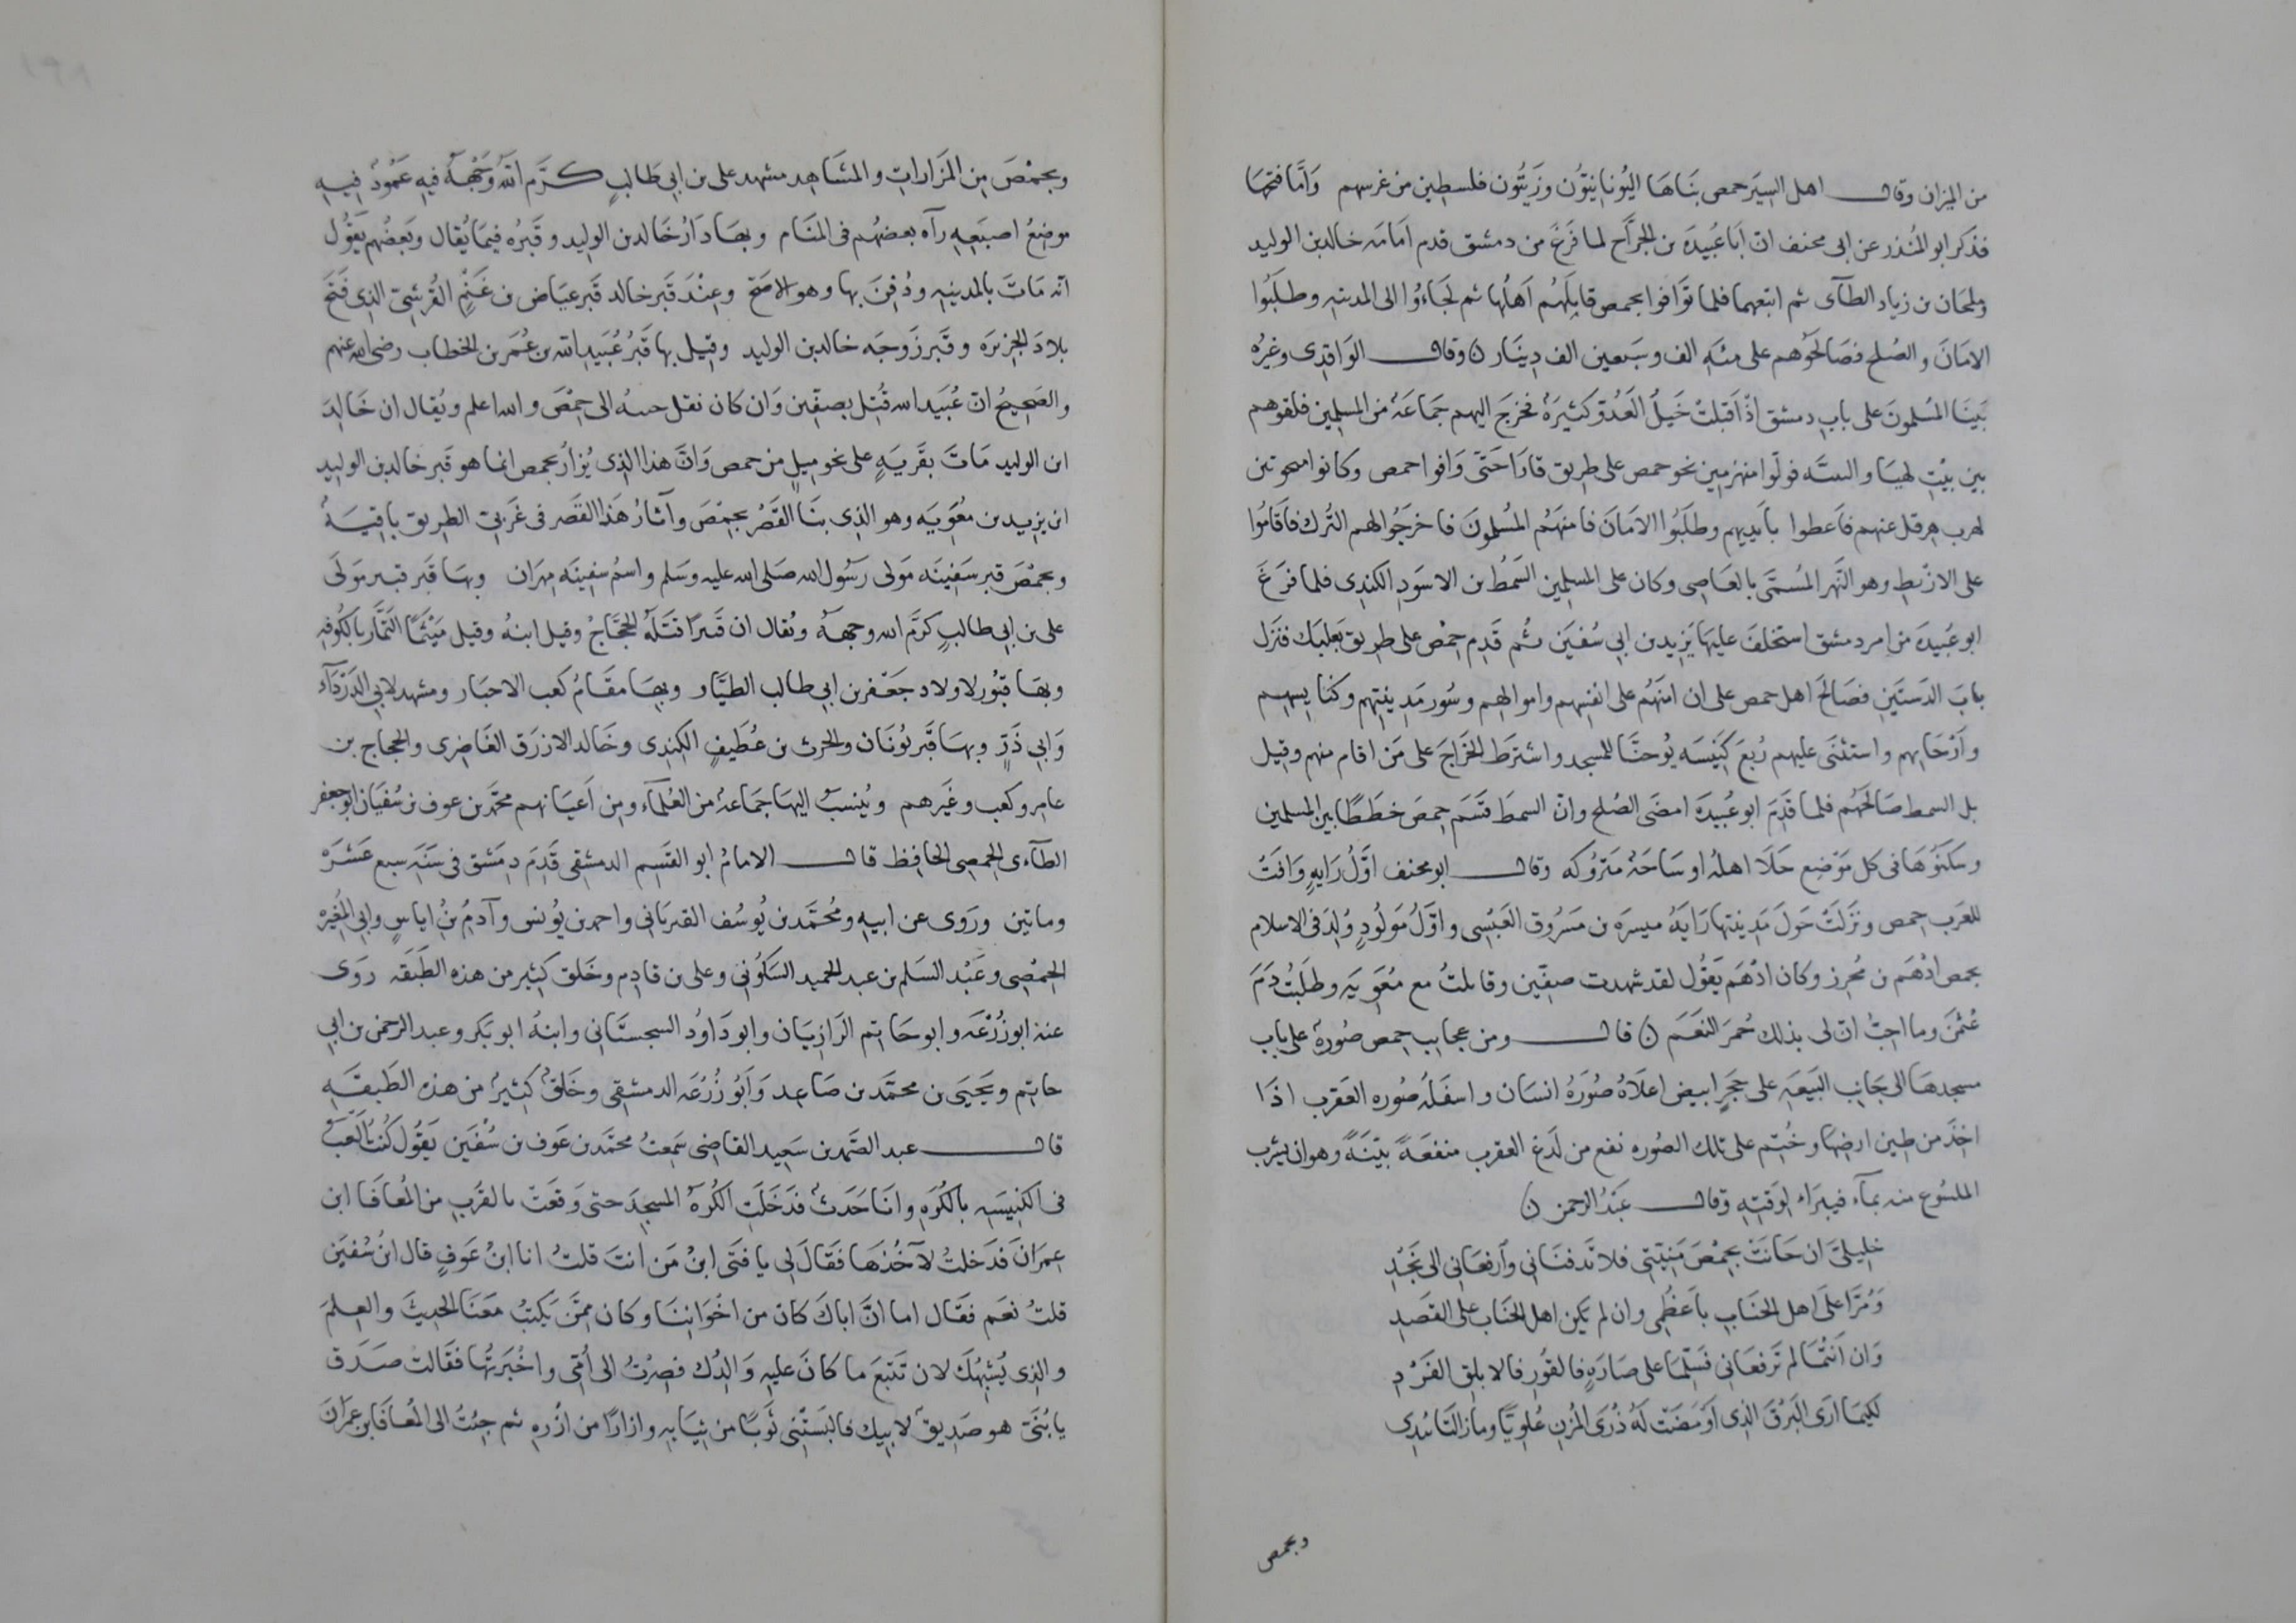 من الميزان وقال اهل السير حمص بناها اليونانيون وزيتون فلسطين من غرسهم وأما فتحها
فذكر ابو المنذر عن ابى مخنف ان ابا عبيدة بن الجراح لما فرغ من دمشق قدم امامه خالد بن الوليد
وملحان بن زياد الطآى ثم اتبعهما فلما توافوا بحمص قاتلهم اهلها ثم لجاءوا الى المدينه وطلبوا
الامان والصلح فصالحوهم على مئه الف وسبعين الف دينار وقال الواقدى وغيره
بينا المسلمون على باب دمشق اذ اقبلت خيل العدو كثيرة فخرج اليهم جماعة من المسلمين فلقوهم
بين بيت لهيا والسه فولوا منهزمين نحو حمص على طريق قارا حتى وافوا حمص وكانوا
لهرب هرقل عنهم فاعطوا بايديهم وطلبوا الامان فامنهم المسلمون فاخرجوا لهم النزل فاقاموا
على الارنط وهو النهر المسمى بالعاصى وكان على المسلمين السمط بن الاسود الكندى فلما فرغ
ابو عبيدة من امر دمشق استخلف عليها يزيد بن ابى سفين ثم قدم حمص على طريق بعلبك فنزل
باب الرستين فصالح اهل حمص على ان امنهم على انفسهم واموالهم وسور مدينتهم وكنايسهم
وارحايهم واستثنى عليهم ربع كنيسه يوحنا للمسجد واشترط الخراج على من اقام منهم وقيل
بل السمط صالحهم فلما قدم ابو عبيدة امضى الصلح وان السمط قسم حمص خططا بين المسلمين
وسكنوها فى كل موضع جلا اهله او ساحة متروكه وقال ابو مخنف اول راية وافت
للعرب حمص ونزلت حول مدينتها راية ميسره بن مسروق العبسى واول مولود ولد فى الاسلام
بحمص ادهم بن محرز وكان ادهم يقول لقد شهدت صفين وقاتلت مع معوية وطلبت دم
عثمن وما احب ان لى بذلك حمر النعم قال ومن عجايب حمص صورة على باب
مسجدها الى جانب البيعه على حجر ابيض اعلاه صورة انسان واسفله صوره العقرب اذا
اخذ من طين ارضها وختم على تلك الصوره نفع من لدغ العقرب منفعة بينة وهو ان يشرب
الملسوع منه بمآء فيبراء لوقته وقال عبد الرحمن
خليلى ان حانت بحمص منيتى فلا تدفنانى وارفعانى الى نجد
ومرا على اهل الجناب باعظمى وان لم يكن اهل الجناب على القصد
وان انتما لم ترفعانى فسلما على صارة فالقور فالابلق الفرد
لكيما ارى البرق الذى اومضت له ذرى المزن علويا وماذا لنا يبدى
وبحمص
وبحمص من المزارات والمشاهد مشهد على بن ابى طالب كرم الله وجهه فيه عمود فيه
موضع اصبعه رآه بعضهم فى المنام وبها دار خالد بن الوليد وقبره فيما يقال وبعضهم يقول
انه مات بالمدينه ودفن بها وهو الاصح وعند قبر خالد قبر عياض بن غنم القرشى الذى فتح
بلاد الجزيره وقبر زوجه خالد بن الوليد وقيل بها قبر عبيد الله بن عمر بن الخطاب رضى الله عنهم
والصحيح ان عبيد الله قتل بصفين وان كان نقل جسه الى حمص والله اعلم ويقال ان خالد
ابن الوليد مات بقرية على نحو ميل من حمص وان هذا الذى يزار بحمص انما هو قبر خالد بن الوليد
ابن يزيد بن معوية وهو الذى بنا القصر بحمص وآثار هذا القصر فى غربى الطريق باقية
وبحمص قبر سفينه مولى رسول الله صلى الله عليه وسلم واسم سفينه مهران وبها قبر قنبر مولى
على بن ابى طالب كرم الله وجهه ويقال ان قنبرا قتله الحجاج وقيل ابنه وقيل ميثما التمار بالكوفه
وبها قبور لاولاد جعفر بن ابى طالب الطيار وبها مقام كعب الاحبار ومشهد لابى الدردآء
وابى ذر وبها قبر يونان والحرث بن عطيف الكندى وخالد الازرق الغاضرى والحجاج بن
عامر وكعب وغيرهم وينسب اليها جماعة من العلمآء ومن اعيانهم محمد بن عوف بن سفيان ابو جعفر
الطآءى الحمصى الحافظ قال الامام ابو القسم الدمشقى قدم دمشق فى سنه سبع عشره
وماتين وروى عن ابيه ومحمد بن يوسف الفريانى واحمد بن يونس وآدم بن اياس وابى المغيره
الحمصى وعبد السلم بن عبد الحميد السكونى وعلى بن قادم وخلق كثير من هذه الطبقه روى
عنه ابو زرعه وابو حاتم الرازيان وابو داود السجستانى وابنه ابو بكر وعبد الرحمن بن ابى
حاتم ويحيى بن محمد بن صاعد وابو زرعه الدمشقى وخلق كثير من هذه الطبقه
قال عبد الصمد بن سعيد القاضى سمعت محمد بن عوف بن سفين يقول كنت العب
فى الكنيسه بالكره وانا حدث فدخلت الكرة المسجد حتى وقعت بالقرب من المعافا ابن
عمران فدخلت لآخذها فقال لى يا فتى ابن من انت قلت انا ابن عوف قال ابن سفين
قلت نعم فقال اما ان اباك كان من اخواننا وكان ممن يكتب معنا الحديث والعلم
والذى يشبهك لان تتبع ما كان عليه والدك فصرت الى امى واخبرتها فقالت صدق
يا بنى هو صديق لابيك فالبستنى ثوبا من ثيابه وازارا من ازره ثم جئت الى المعافا بن عمران